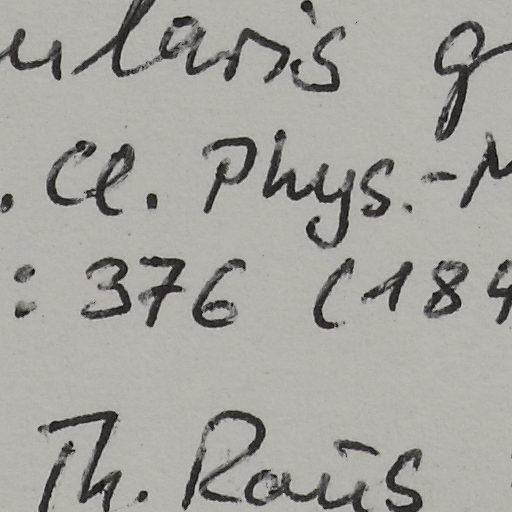 ularis g
. Cl. Phys.-M
: 376 (184
Th. Raus